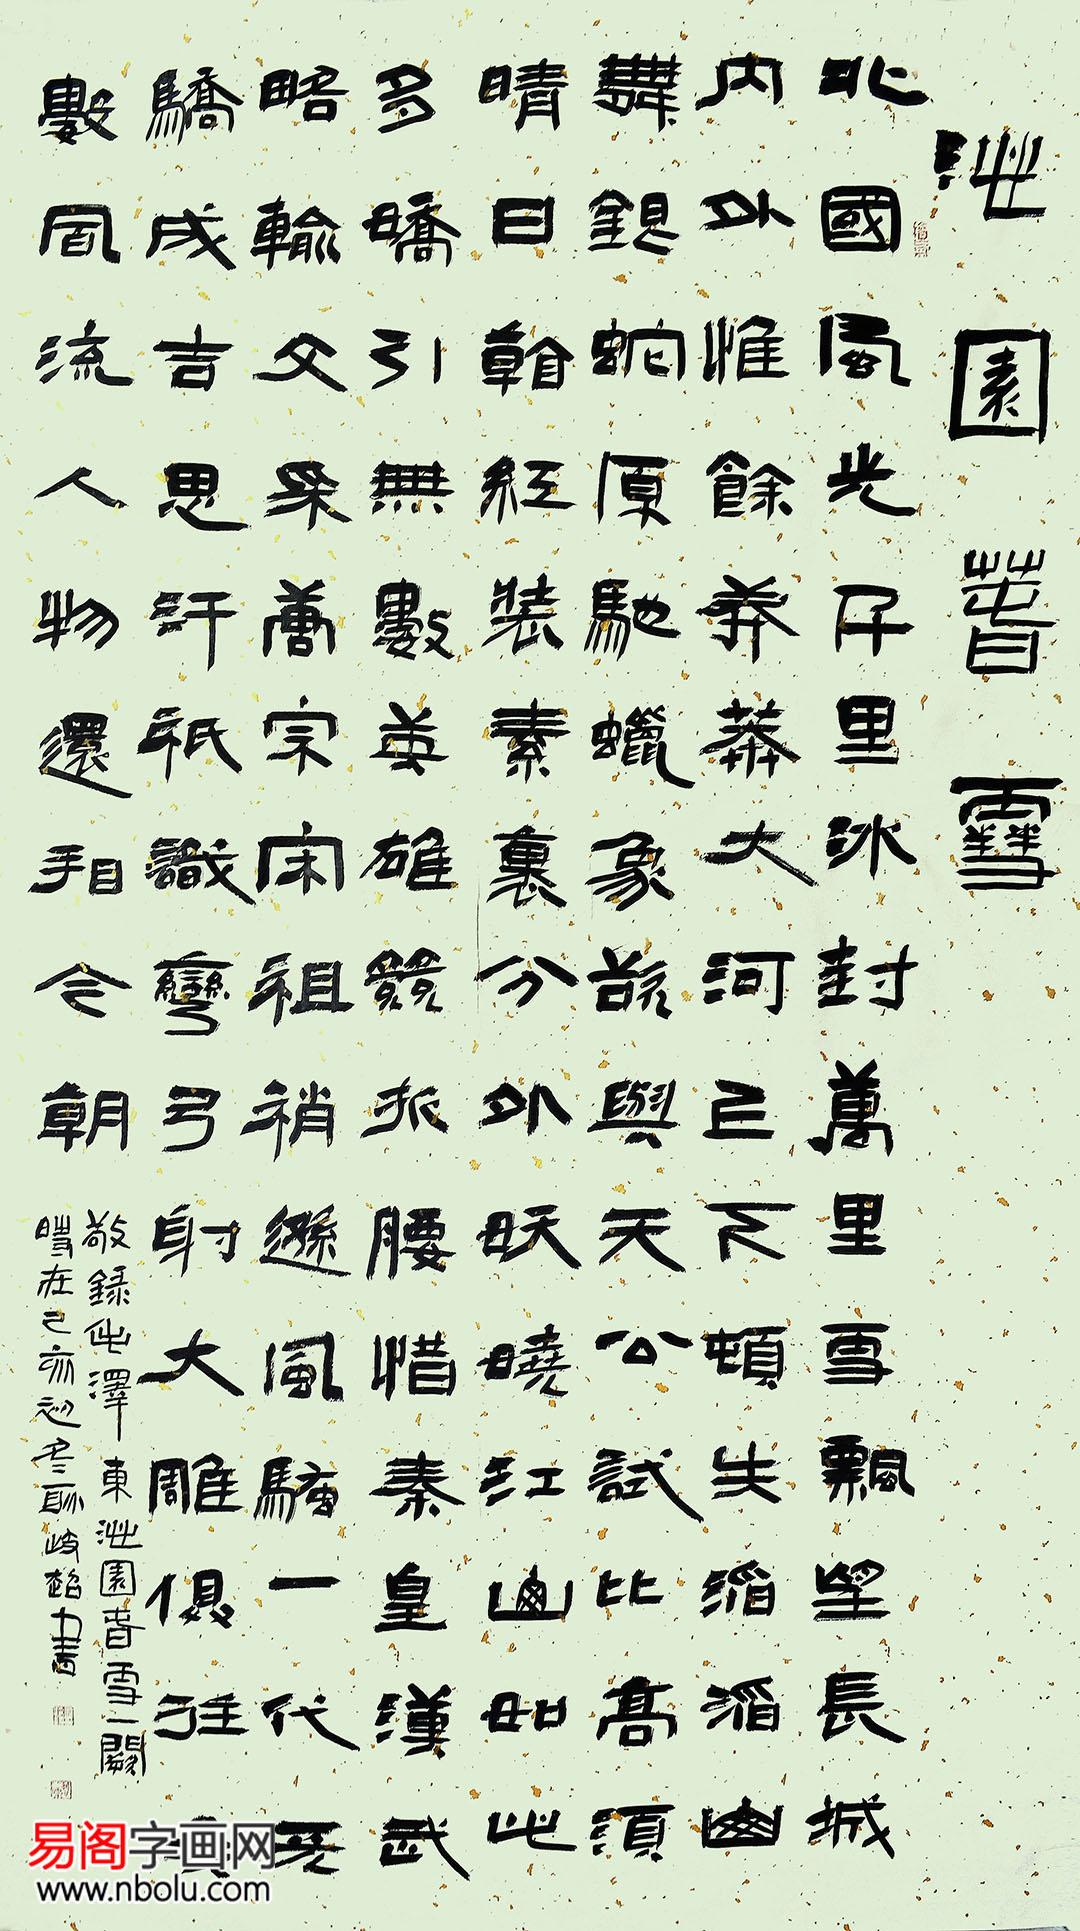 沁園春雪
北國風光千里冰封萬里雪飄望長城
内外惟餘莽莽大河上下頓失滔滔山
舞銀蛇原馳蠟象欲與天公試比高須
晴日看紅裝素裹分外妖嬈江山如此
多嬌引無數英雄競折腰惜秦皇漢武
略輸文采唐宗宋祖稍遜風騷一代天
驕成吉思汗祇識彎弓射大雕俱往矣
數風流人物還看今朝
敬錄毛澤東沁園春雪一闋
時在己亥初冬岐書
易阁字画网
www.nbolu.com